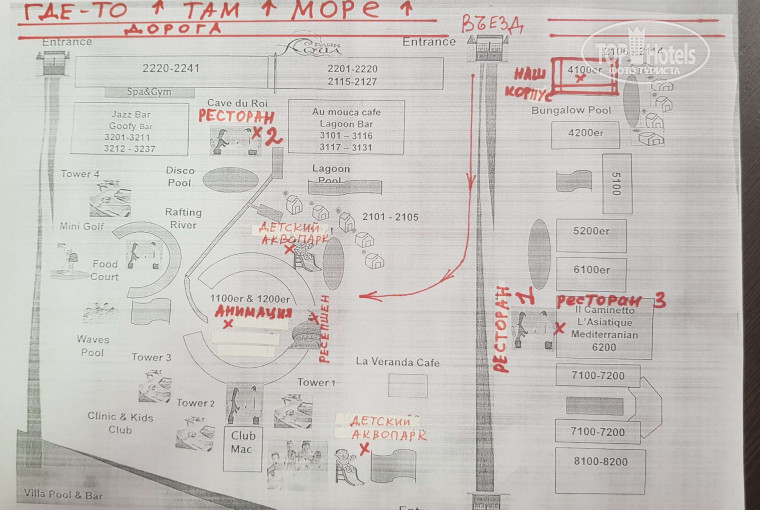 ГДЕ-ТО ↑ ТАМ ↑ МОРЕ ↑
ДОРОГА
ВЪЕЗД
Entrance
Entrance
2220-2241
2201-2220
2115-2127
НАШ
КОРПУС
4100er
TopHotels
ФОТО ТУРИСТА
Spa&Gym
Bungalow Pool
Cave du Roi
РЕСТОРАН
2
Jazz Bar
Goofy Bar
3201-3211
3212 - 3237
Au mouca cafe
Lagoon Bar
3101 – 3116
3117 – 3131
4200er
Tower 4
Disco
Pool
Lagoon
Pool
5100
Mini Golf
Rafting
River
2101 - 2105
ДЕТСКИЙ
АКВОПАРК
5200er
Food
Court
6100er
1100er & 1200er
АНИМАЦИЯ
РЕСЕПШЕН
РЕСТОРАН 1
РЕСТОРАН 3
Il Caminetto
L'Asiatique
Mediterranian
6200
Waves
Pool
Tower 3
La Veranda Cafe
7100-7200
Tower 1
Tower 2
Clinic & Kids
Club
Club
Mac
ДЕТСКИЙ
АКВОПАРК
7100-7200
8100-8200
Villa Pool & Bar